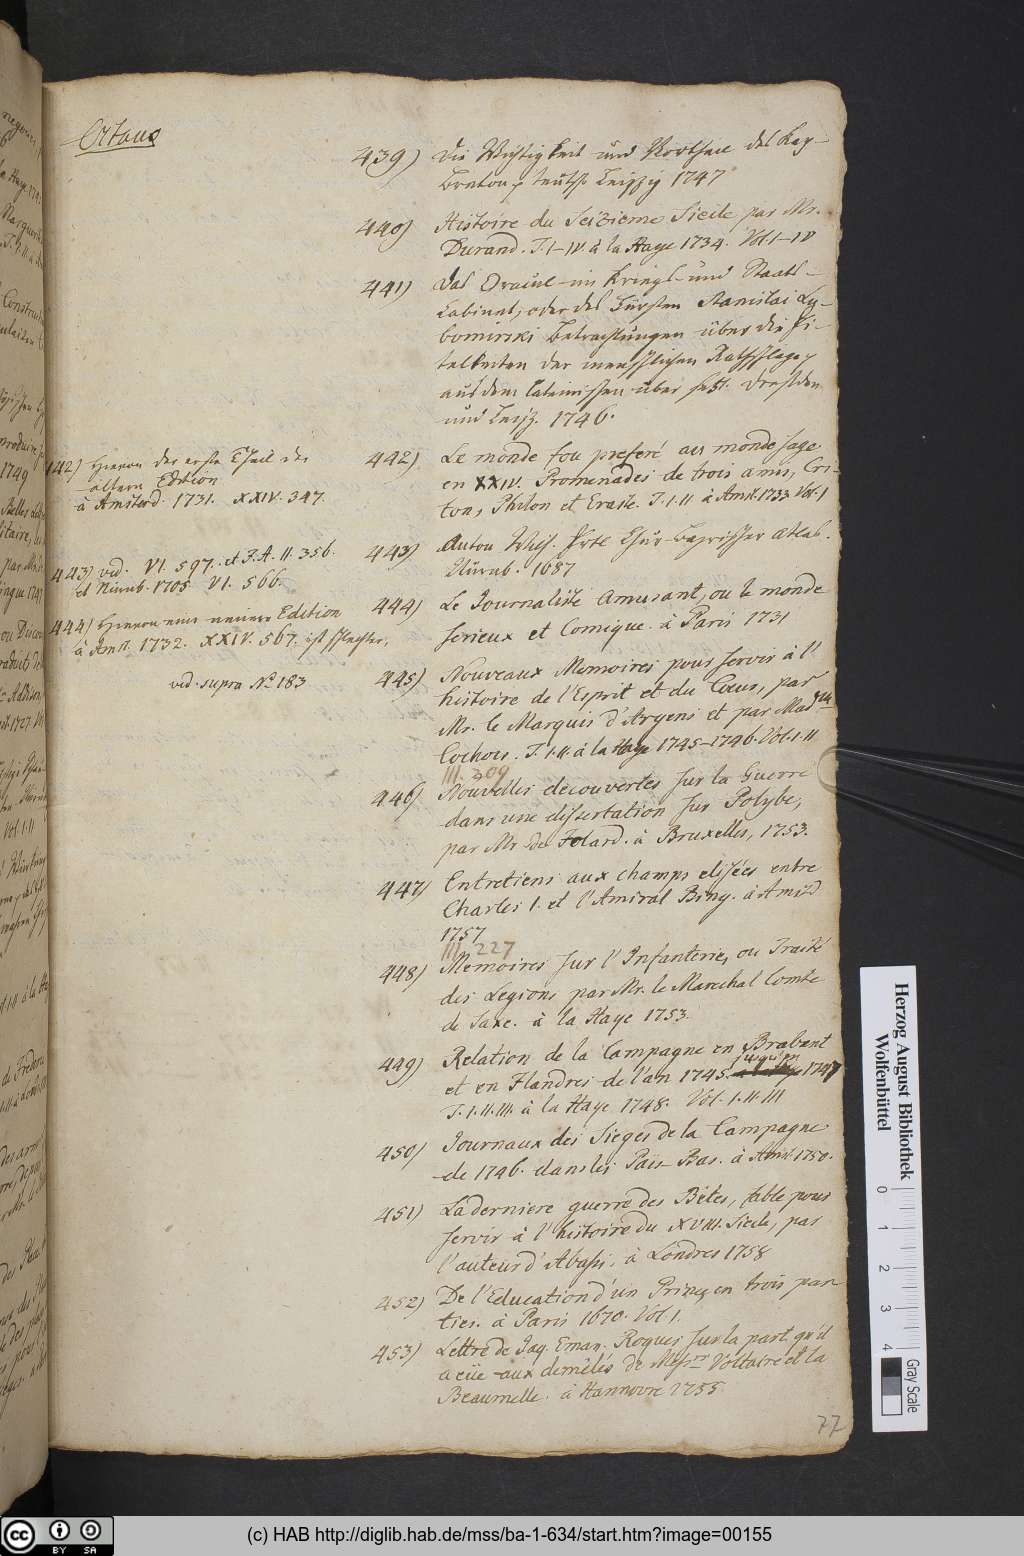 Octavo
439) Die Wichtigkeit und Vortheile des Cap-
Breton, teutsch Leipzig 1747
440) Histoire du Seizieme Siecle par Mr.
Durand. T. I-IV à la Haye 1734. Vol. I-IV
441) Das Oracul im Kriegs- und Staats-
Cabinet, oder des Fürsten Stanislai Lu-
bomirski Betrachtungen über die Ei-
telkeiten der menschlichen Rathschläge,
aus dem Lateinischen übersetzt. Dresden
und Leipz. 1746.
442) Le monde fou preferé au monde sage
en XXIV. Promenades de trois amis, Cri-
ton, Philon et Eraste. T. I. II à Amst. 1733 Vol. I
442) Hievon der erste Theil der
ältern Edition
à Amsterd. 1731. XXIV. 347.
443) Anton Wilh. Ertl Chur-Bayrischer Atlas.
Nürnb. 1687
443) vid. VI. 597. et F. A. II. 356.
et Nürnb. 1705 VI. 566.
444) Le Journaliste Amusant, ou le monde
serieux et Comique. à Paris 1731
444) Hievon eine neuere Edition
à Amst. 1732. XXIV. 567. ist schlechter,
vid. supra No. 183
445) Nouveaux Memoires pour servir à l'
histoire de l'Esprit et du Cœur, par
Mr. le Marquis d'Argens et par Madlle
Cochois. T. I. II. à la Haye 1745-1746. Vol. I. II
III. 309
446) Nouvelles decouvertes sur la Guerre
dans une dissertation sur Polybe,
par Mr de Folard. à Bruxelles, 1753.
447) Entretiens aux champs elisées entre
Charles I. et l'Amiral Bing. à Amstd
1757
III. 227
448) Memoires sur l'Infanterie, ou Traité
des Legions par Mr. le Marechal Comte
de Saxe. à la Haye 1753.
449) Relation de la Campagne en Brabant
et en Flandres de l'an 1745. jusqu'en 1747
T. I. II. III. à la Haye 1748. Vol. I. II. III
450) Journaux des Sieges de la Campagne
de 1746. dans les Païs Bas. à Amst. 1750.
451) La derniere guerre des Bêtes, fable pour
servir à l'histoire du XVIII. Siecle, par
l'auteur d'Abassi, à Londres 1758
452) De l'Education d'un Prince, en trois par-
ties. à Paris 1670. Vol. I.
453) Lettre de Jaq. Eman. Roques sur la part qu'il
a eüe aux demêlés de Messrs Voltaire et la
Beaumelle. à Hannovre 1755.
77
Herzog August Bibliothek
Wolfenbüttel
0 1 2 3 4
Gray Scale
(c) HAB http://diglib.hab.de/mss/ba-1-634/start.htm?image=00155
cc BY SA